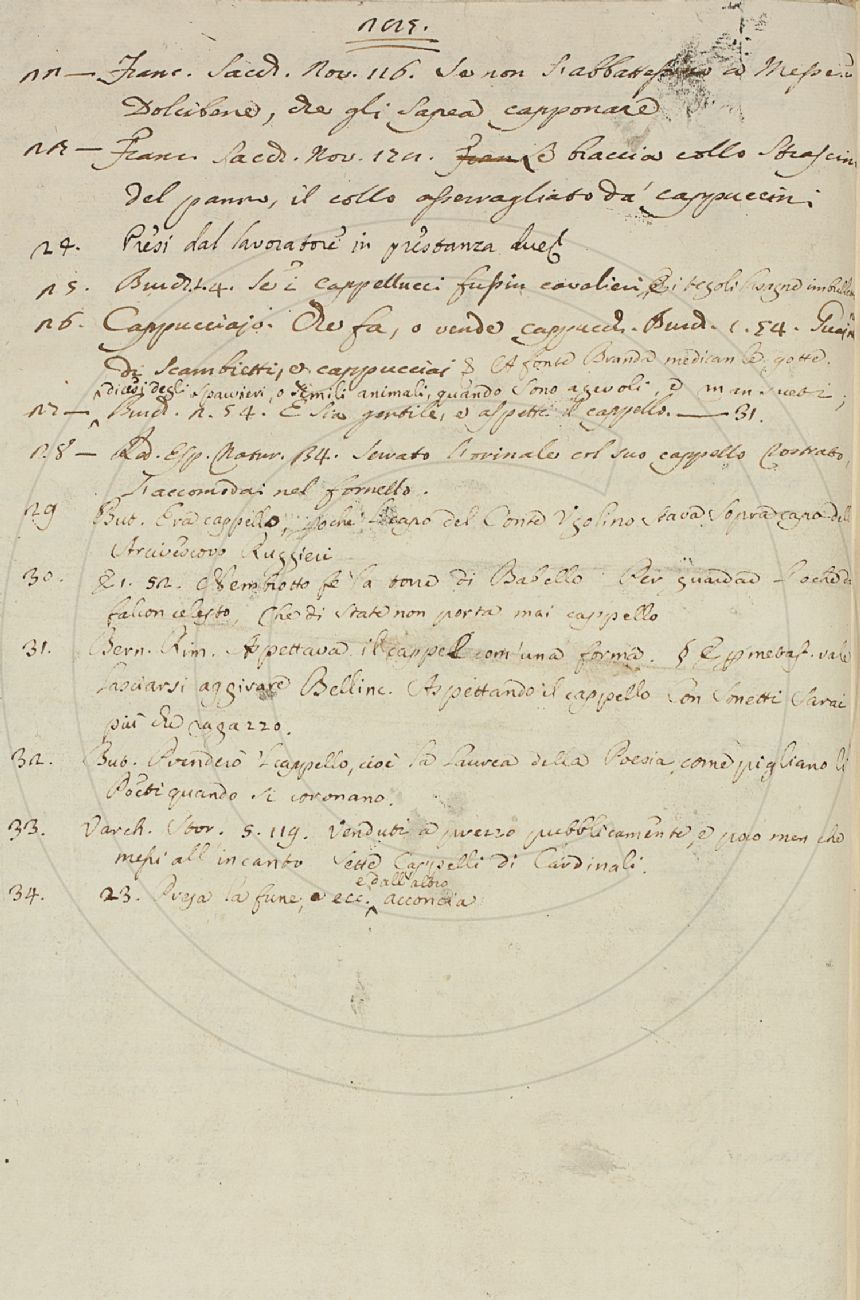 22 — Franc. Sacch. Nov. 116. Se non s'abbattesse a Messere
Dolcibene, che gli sapea capponare
23 — Franc. Sacch. Nov. braccia collo
del panno, il collo asserragliato da' cappuccini
24. Presi dal lavoratore in prestanza
25. Burch. 1. 4. Se i cappellucci fussin cavalieri, E i tegoli
26. Cappucciajo. Che fa, o vende cappucci. Burch. 1. 54.
di Scambietti, e cappucciai E A Fonte Branda medican le gotte.
dicesi degli Sparvieri, o simili animali, quando sono agevoli, e mansueti;
27 — Burch. 2. 54. E sia gentile, e aspetti il cappello. — 31.
28 — Ed. Esp. Natur. 34. Serrato l'orinale col suo cappello
l'accomodai nel fornello.
29 But. Era cappello, poche 'l capo del Conte Ugolino stava sopra capo dell
Arcivescovo Ruggieri
30. E 1. 52. Nembrotto fe la torre di Babello Per guardar
falcon celesto, Che di state non porta mai cappello
31. Bern. Rim. Aspettava il cappel com'una forma. § E p metaf. vale
lasciarsi aggirare Bellinc. Aspettando il cappello con Sonetti Sarai
più che ragazzo.
32. But. Prenderò 'l cappello, cioè la laurea della Poesia, come pigliano li
Poeti quando si coronano.
33. Varch. Stor. 5. 119. Venduti a prezzo pubblicamente, e poco men che
messi all'incanto sette Cappelli di Cardinali.
e dall'altro
34. 23. Presa la fune, e ecc. acconcia